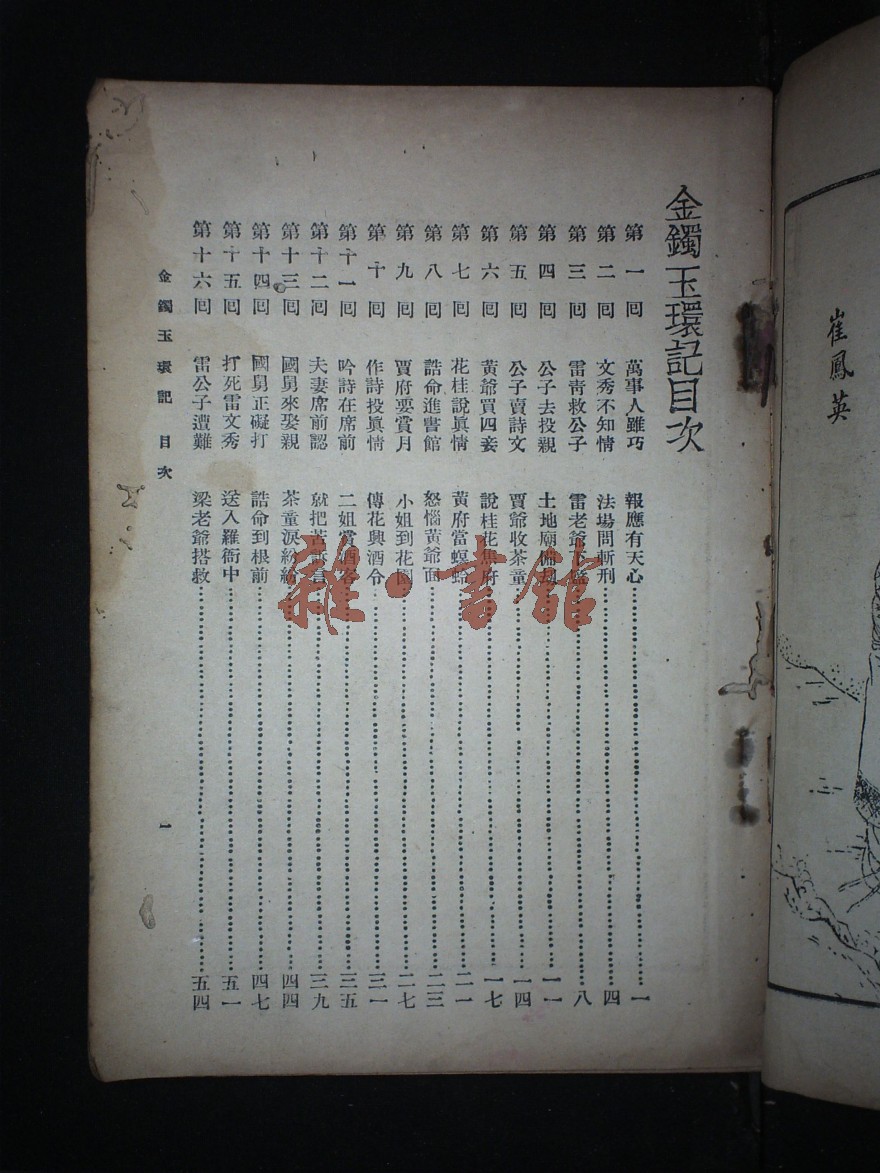 金鐲玉環記目次
第一回 萬事人雖巧 報應有天心 一
第二回 文秀不知情 法場問斬刑 四
第三回 雷青救公子 雷老爺下 八
第四回 公子去投親 土地廟 一一
第五回 公子賣詩文 賈爺收茶童 一四
第六回 黃爺買四妾 說桂花 府 一七
第七回 花桂說眞情 黃府當螟蛉 二一
第八回 誥命進書館 怒惱黃爺面 二三
第九回 賈府要賞月 小姐到花園 二七
第十回 作詩投眞情 傳花與酒令 三一
第十一回 吟詩在席前 二姐賞酒 三五
第十二回 夫妻席前認 就把苦 三九
第十三回 國舅來娶親 茶童淚紛紛 四四
第十四回 國舅正礙打 誥命到根前 四七
第十五回 打死雷文秀 送入羅衙中 五一
第十六回 雷公子遭難 梁老爺搭救 五四
金鐲玉環記 目次
一
崔鳳英
雜·書館